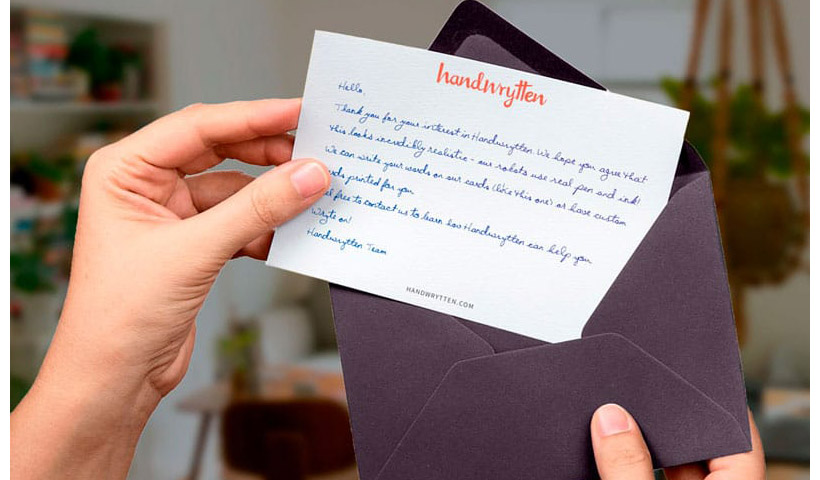 handwrytten
Hello,
Thank you for your interest in Handwrytten. We hope you agree that
this looks incredibly realistic - our robots use real pen and ink!
We can write your words on our cards (like this one) or have custom
printed for you
free to contact us to learn how Handwrytten can help you.
Wryte on!
Handwrytten Team
HANDWRYTTEN.COM